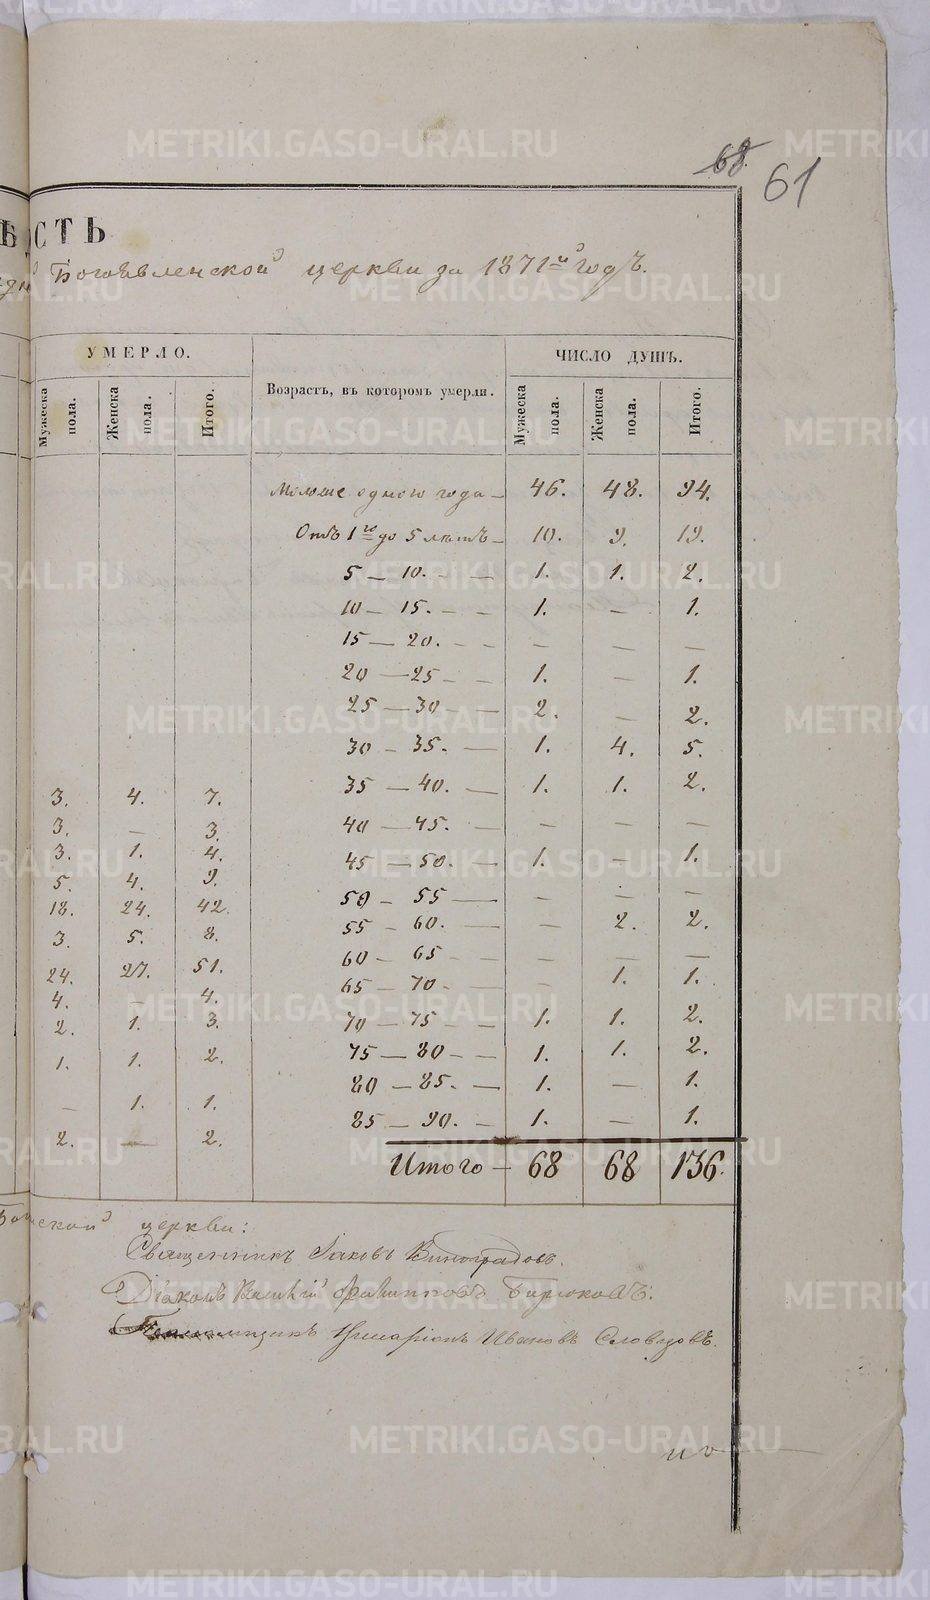 68. 61
ѢСТЬ
Богоявленской церкви за 1871й годъ.
УМЕРЛО. ЧИСЛО ДУШЪ.
Мужеска пола. Женска пола. Итого. Возрастъ, въ которомъ умерли. Мужеска пола. Женска пола. Итого.
Моложе одного года — 46. 48. 94.
Отъ 1го до 5 лѣтъ — 10. 9. 19.
5 — 10. — 1. 1. 2.
10 — 15. — — 1. — 1.
15 — 20. — — — — —
20 — 25 — — 1. — 1.
25 — 30 — — 2. — 2.
30 — 35. — 1. 4. 5.
35 — 40. — 1. 1. 2.
3. 4. 7.
40 — 45. — — — —
3. — 3.
3. 1. 4.
45 — 50. — 1. — 1.
5. 4. 9.
50 — 55 — — — —
18. 24. 42.
55 — 60. — — 2. 2.
3. 5. 8.
60 — 65 — — — —
24. 27. 51.
65 — 70 — — — 1. 1.
4. — 4.
2. 1. 3.
70 — 75 — — 1. 1. 2.
1. 1. 2.
75 — 80 — — 1. 1. 2.
80 — 85. — 1. — 1.
— 1. 1.
85 — 90. — 1. — 1.
2. — 2.
Итого — 68 68 136.
церкви:
Священникъ Іаковъ Виноградовъ.
Діаконъ Филипповъ Бирюковъ.
Иванъ Словцовъ.
METRIKI.GASO-URAL.RU